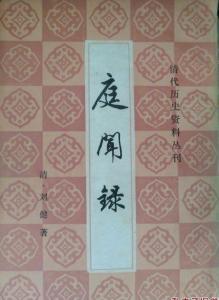 清代历史资料丛刊
庭聞錄
清·刘健著